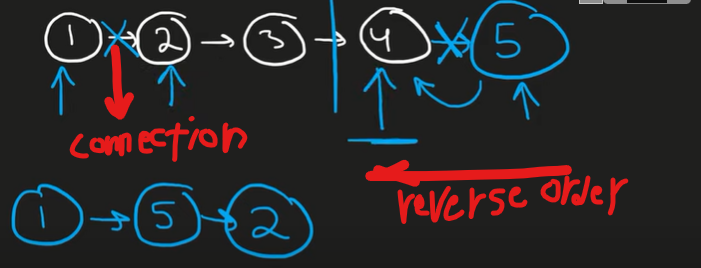 1 → 2 → 3 → 4 → 5
connection
reverse order
1 → 5 → 2